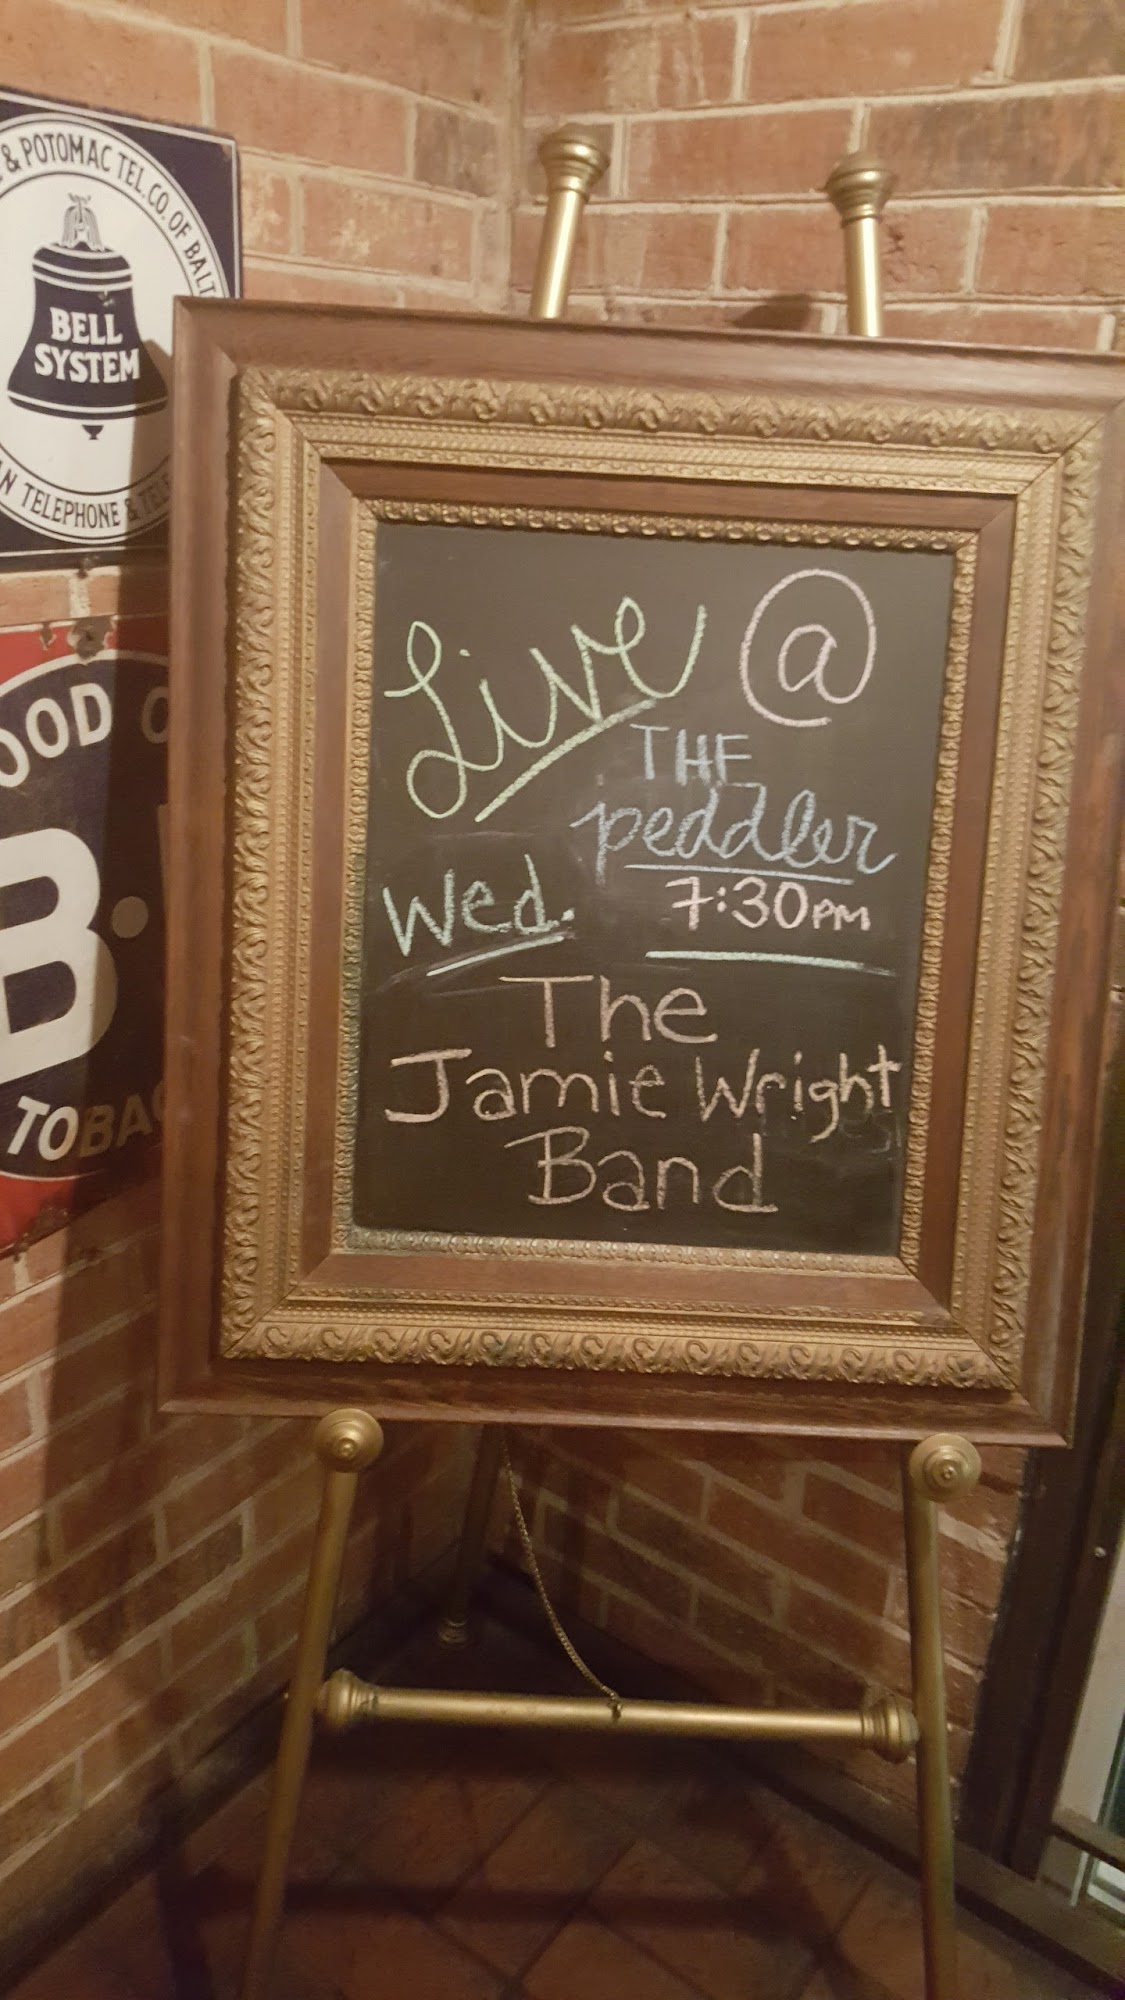 & POTOMAC TEL. CO. OF BALT
BELL
SYSTEM
AN TELEPHONE & TEL
OOD
B.
TOBAC
Live @
THE
peddler
Wed. 7:30PM
The
Jamie Wright
Band